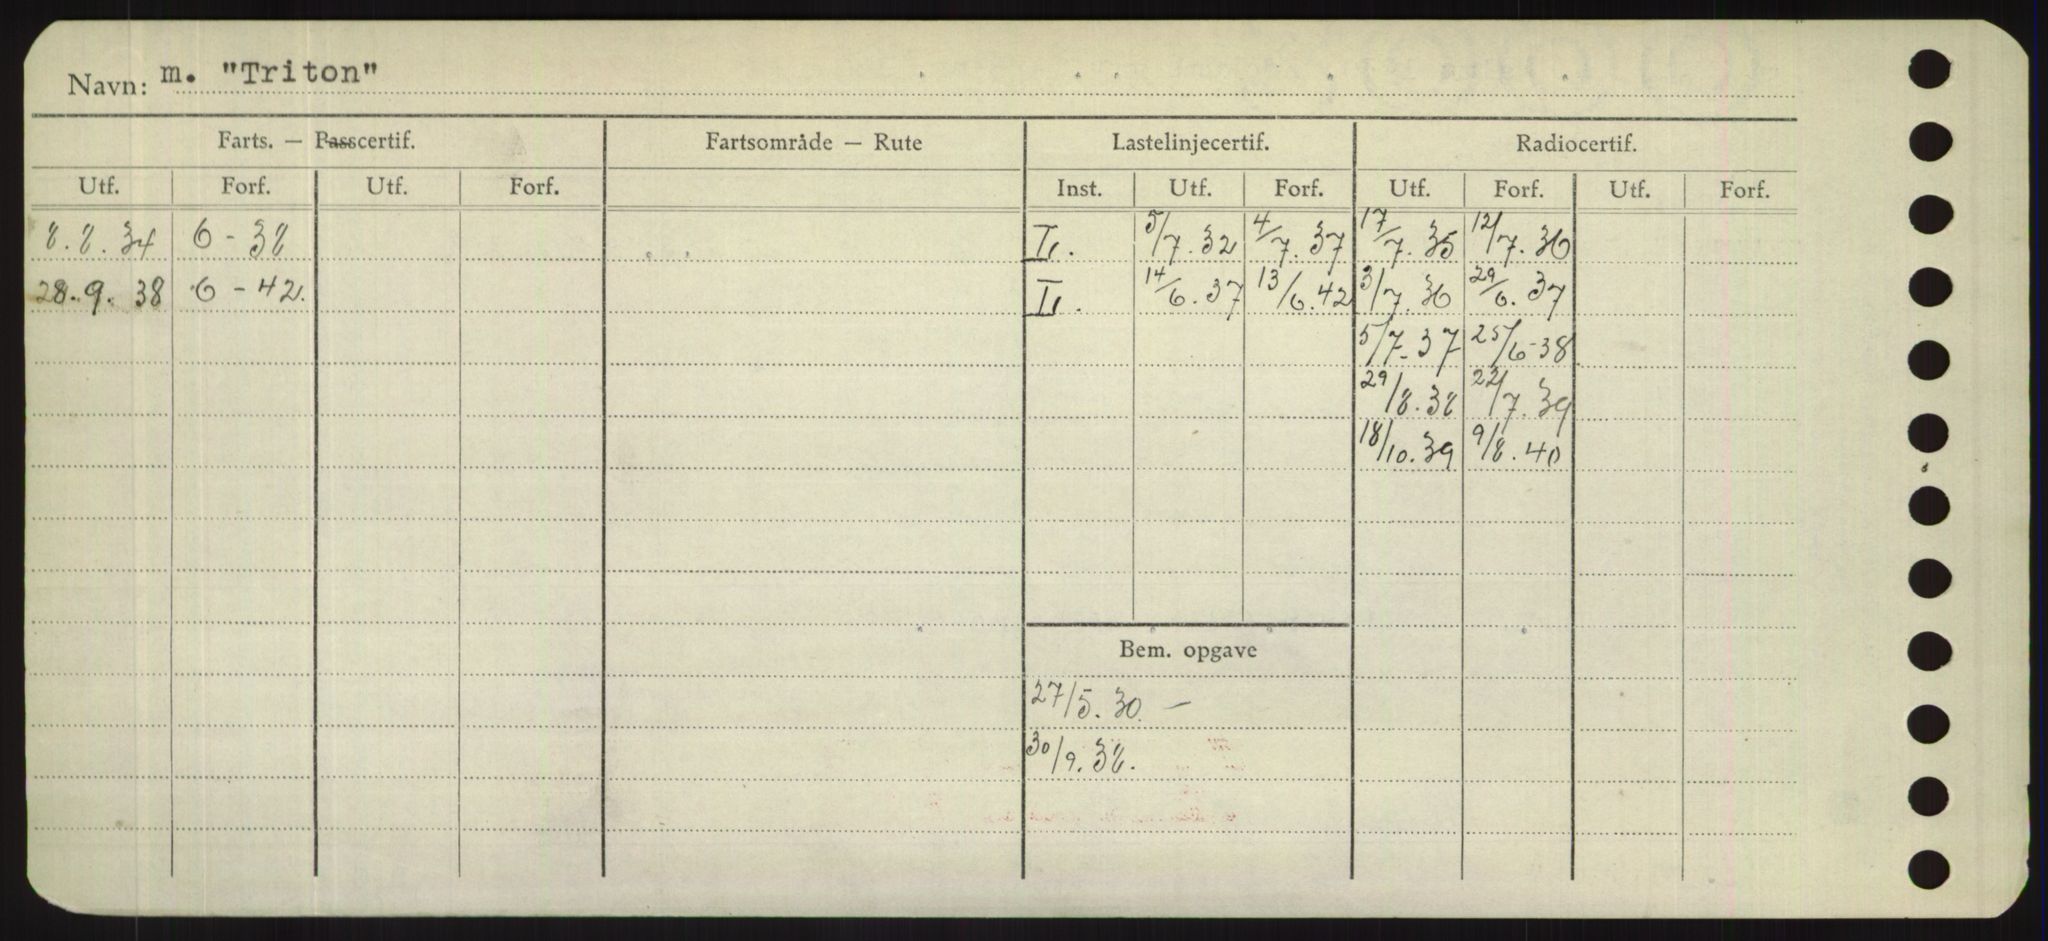 Navn: m. "Triton"
Farts. — Passcertif. Fartsområde — Rute Lastelinjecertif. Radiocertif.
Utf. Forf. Utf. Forf. Inst. Utf. Forf. Utf. Forf. Utf. Forf.
8.8.34 6-38 5/7.32 4/7.37 17/7.35 12/7.36
28.9.38 6-42. 14/6.37 13/6.42 3/7.36 29/6.37
5/7-37 25/6-38
29/8.38 22/7.39
18/10.39 9/8.40
Bem. opgave
27/5.30 —
30/9.38.